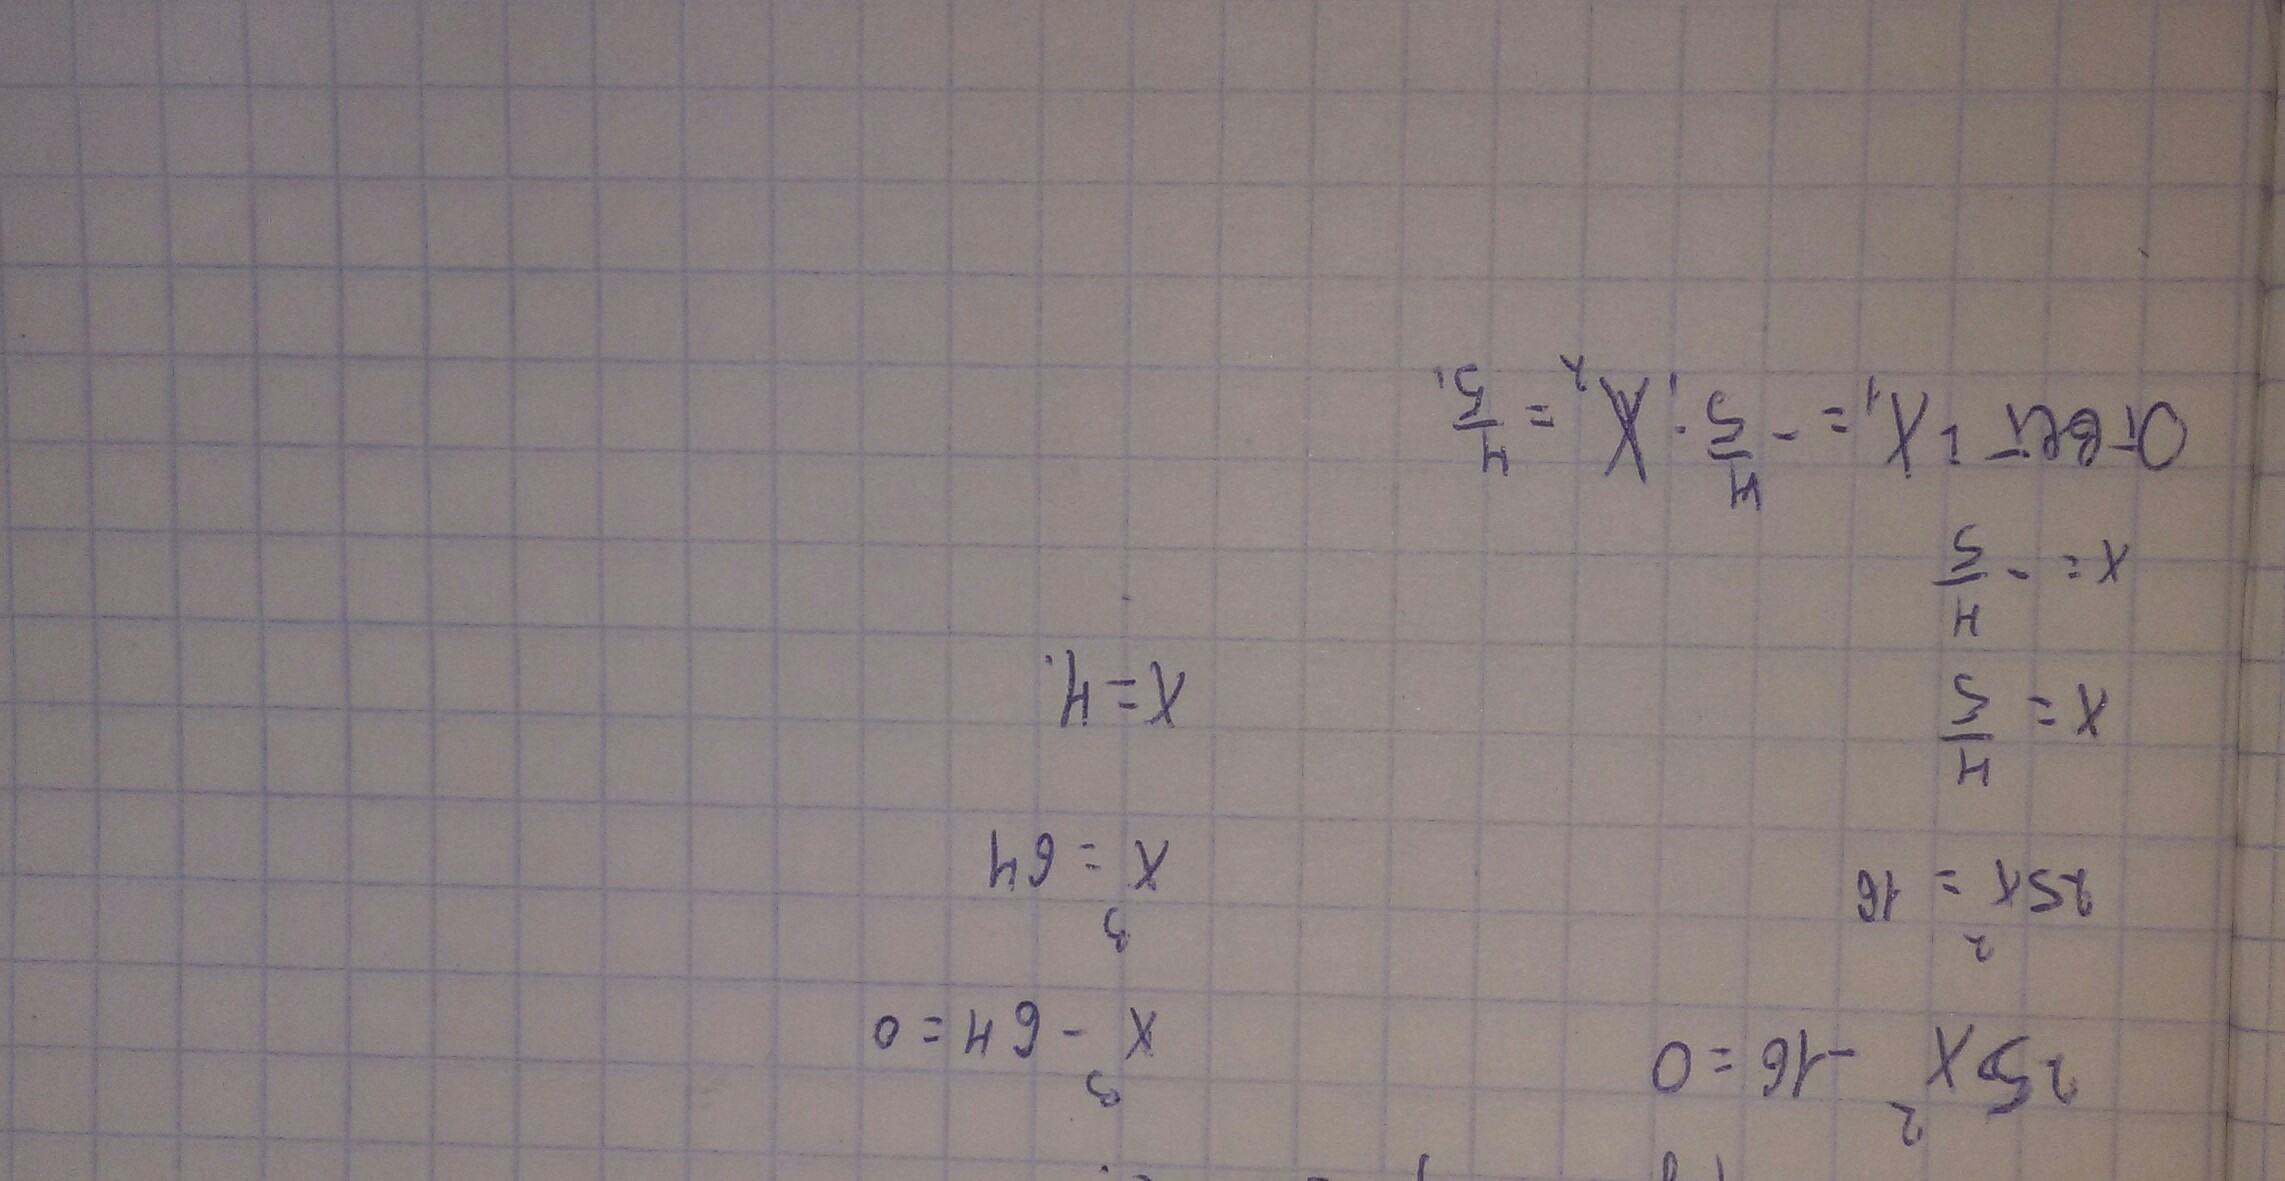 25x² - 16 = 0
25x² = 16
x = 4/5
x = - 4/5
Ответ: X₁ = - 4/5; X₂ = 4/5;
x³ - 64 = 0
x³ = 64
x = 4.